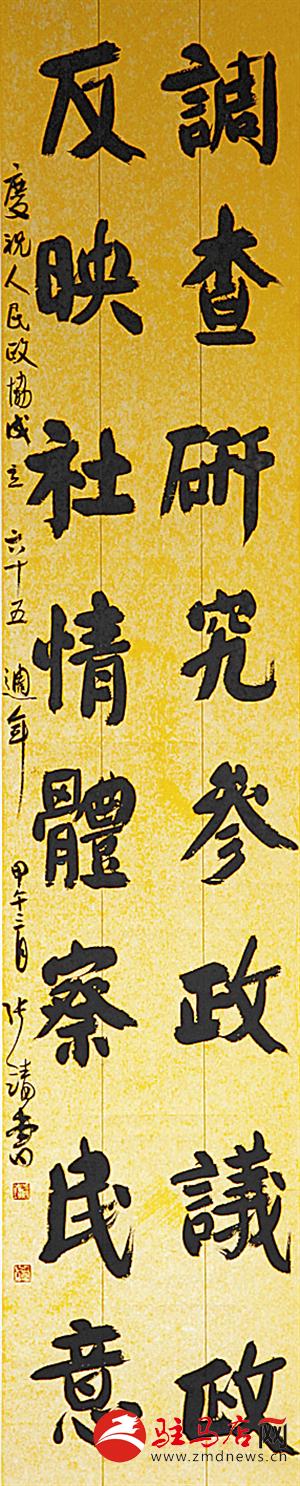 調查研究參政議政
反映社情體察民意
慶祝人民政協成立六十五週年
甲午三月 张清書
驻马店网
www.zmdnews.cn